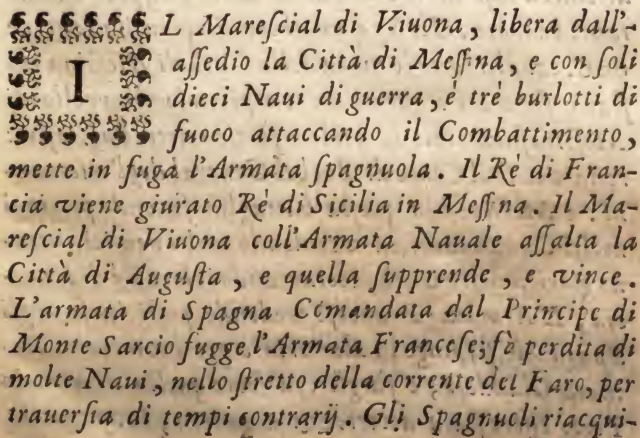 IL Mareſcial di Viuona, libera dall'-
aſſedio la Città di Meſſina, e con ſoli
dieci Naui di guerra, è trè burlotti di
fuoco attaccando il Combattimento,
mette in fuga l'Armata ſpagnuola. Il Rè di Fran-
cia viene giurato Rè di Sicilia in Meſſina. Il Ma-
reſcial di Viuona coll'Armata Nauale aſſalta la
Città di Auguſta, e quella ſupprende, e vince.
L'armata di Spagna Comandata dal Principe di
Monte Sarcio fugge l'Armata Franceſe; fà perdita di
molte Naui, nello ſtretto della corrente del Faro, per
trauerſia di tempi contrarij. Gli Spagnuoli riacqui-